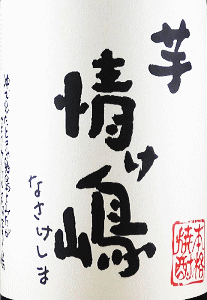 芋
情け嶋
なさけしま
本格
焼酎